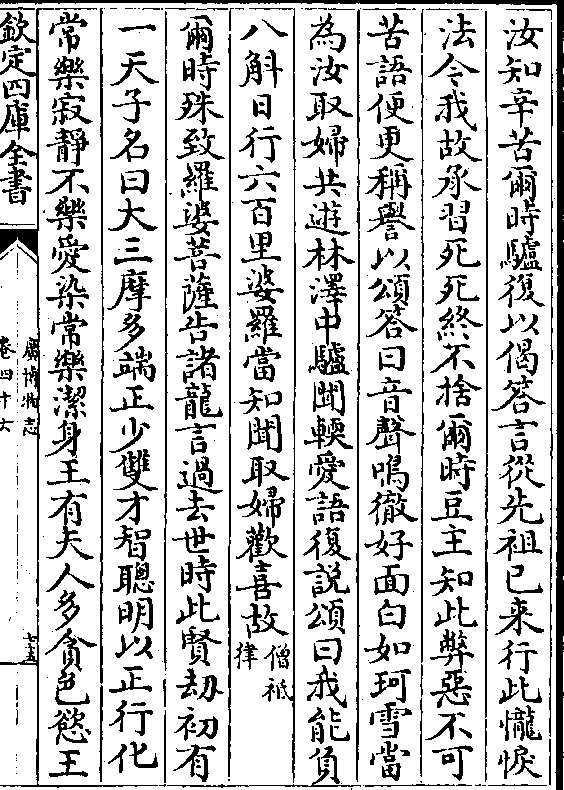 汝知辛苦爾時驢復以偈答言從先祖已来行此㦬悷
法令我故承習死死終不捨爾時豆主知此弊惡不可
苦語便更稱譽以頌答曰音聲鳴徹好面白如珂雪當
為汝取婦共遊林澤中驢聞輭愛語復説頌曰我能負
八斛日行六百里婆羅當知聞取婦歡喜故僧祇律
爾時殊致羅婆菩薩告諸龍言過去世時此賢劫初有
一天子名曰大三摩多端正少雙才智聰明以正行化
常樂寂靜不樂愛染常樂潔身王有夫人多貪色慾王
欽定四庫全書
廣博物志
卷四十六
七五